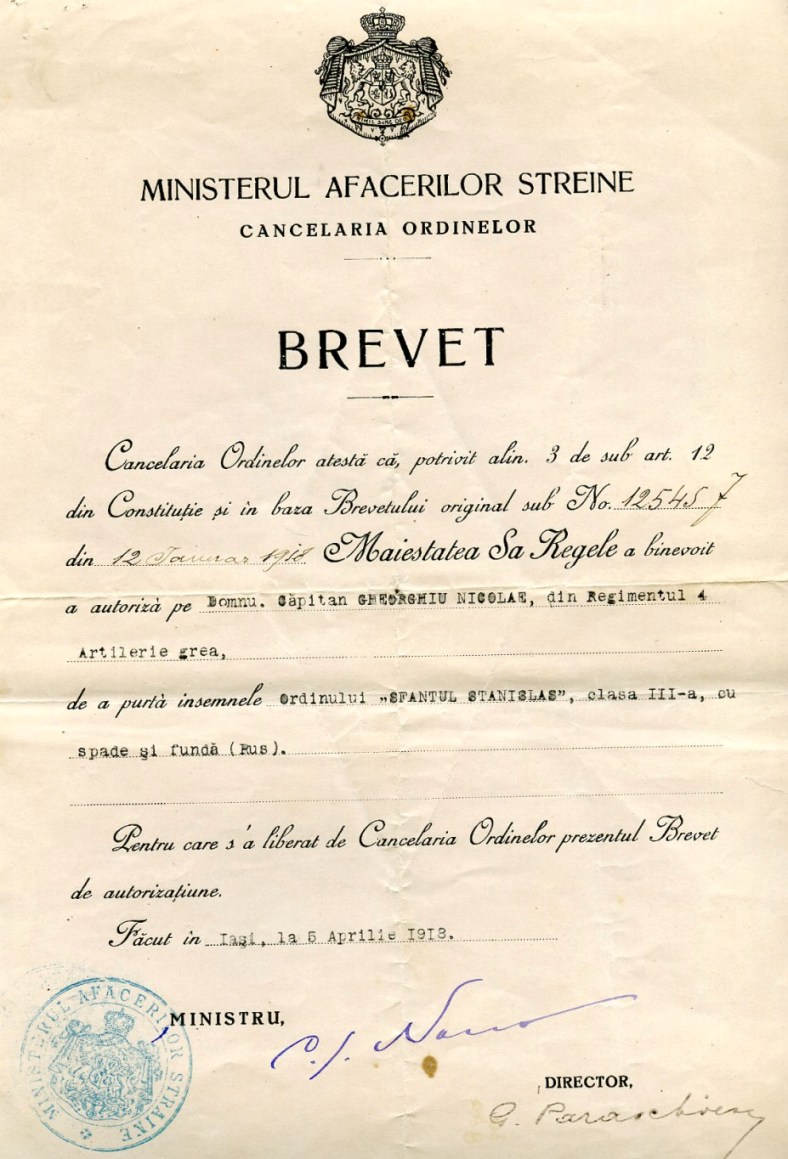 NIHIL SINE DEO
MINISTERUL AFACERILOR STREINE
CANCELARIA ORDINELOR
BREVET
Cancelaria Ordinelor atestă că, potrivit alin. 3 de sub art. 12
din Constituție și în baza Brevetului original sub No. 12545
din 12 Ianuar 1918 Maiestatea Sa Regele a binevoit
a autoriză pe Domnu. Căpitan GHEORGHIU NICOLAE, din Regimentul 4
Artilerie grea,
de a purtà insemnele Ordinului „SFANTUL STANISLAS", clasa III-a, cu
spade şi fundă (Rus).
Pentru care s'a liberat de Cancelaria Ordinelor prezentul Brevet
de autorizațiune.
Făcut în Iaşi, la 5 Aprilie 1918.
MINISTRU,
DIRECTOR,
G. Paraschivescu
MINISTERUL AFACERILOR STRAINE